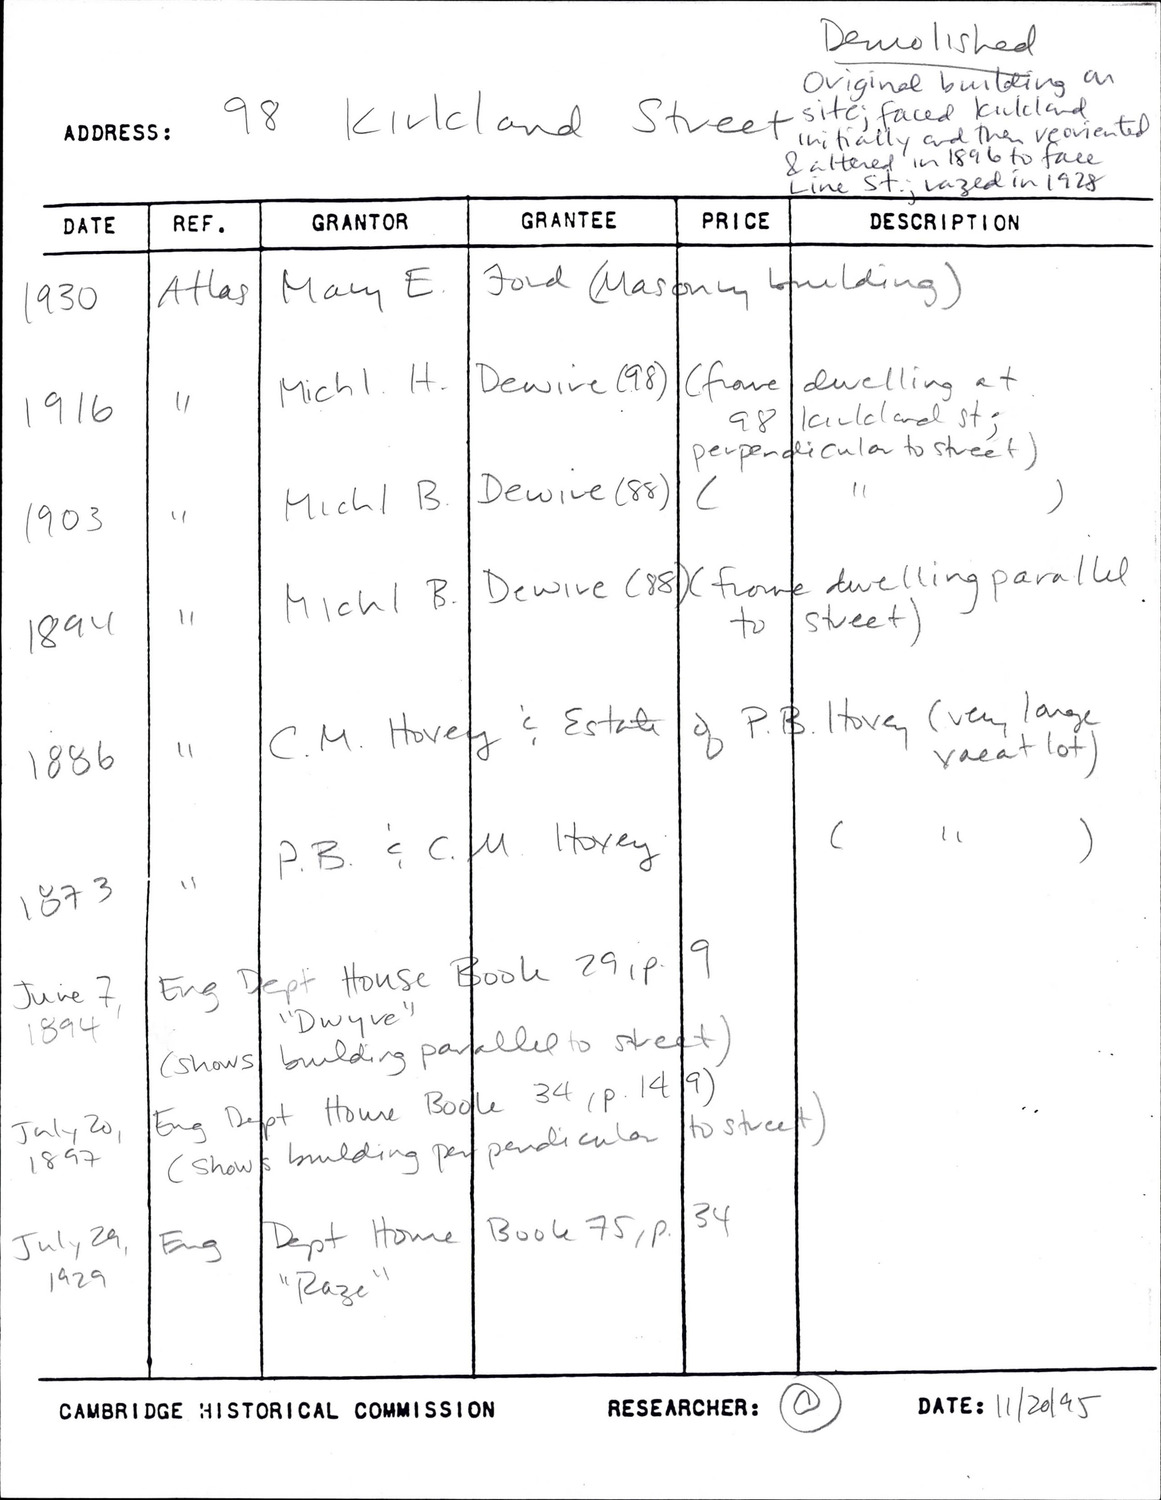 Demolished
Original building on
site; faced Kirkland
initially and then reoriented
& altered in 1896 to face
Line St.; razed in 1928
ADDRESS: 98 Kirkland Street
DATE REF. GRANTOR GRANTEE PRICE DESCRIPTION
1930 Atlas Mary E. Ford (Masonry building)
1916 " Michl. H. Dewire (98) (frame dwelling at
98 Kirkland St;
perpendicular to street)
1903 " Michl B. Dewire (88) ( " )
1894 " Michl B. Dewire (88) (frame dwelling parallel
to street)
1886 " C.M. Hovey & Estate of P.B. Hovey (very large
vacat lot)
1873 " P.B. & C.M. Hovey ( " )
June 7, Eng Dept House Book 29, p. 9
1894 "Dwyre"
(shows building parallel to street)
July 20, Eng Dept House Book 34, p. 149)
1897 (shows building perpendicular to street)
July 29, Eng Dept House Book 75, p. 34
1929 "Raze"
CAMBRIDGE HISTORICAL COMMISSION RESEARCHER: DATE: 11/20/95